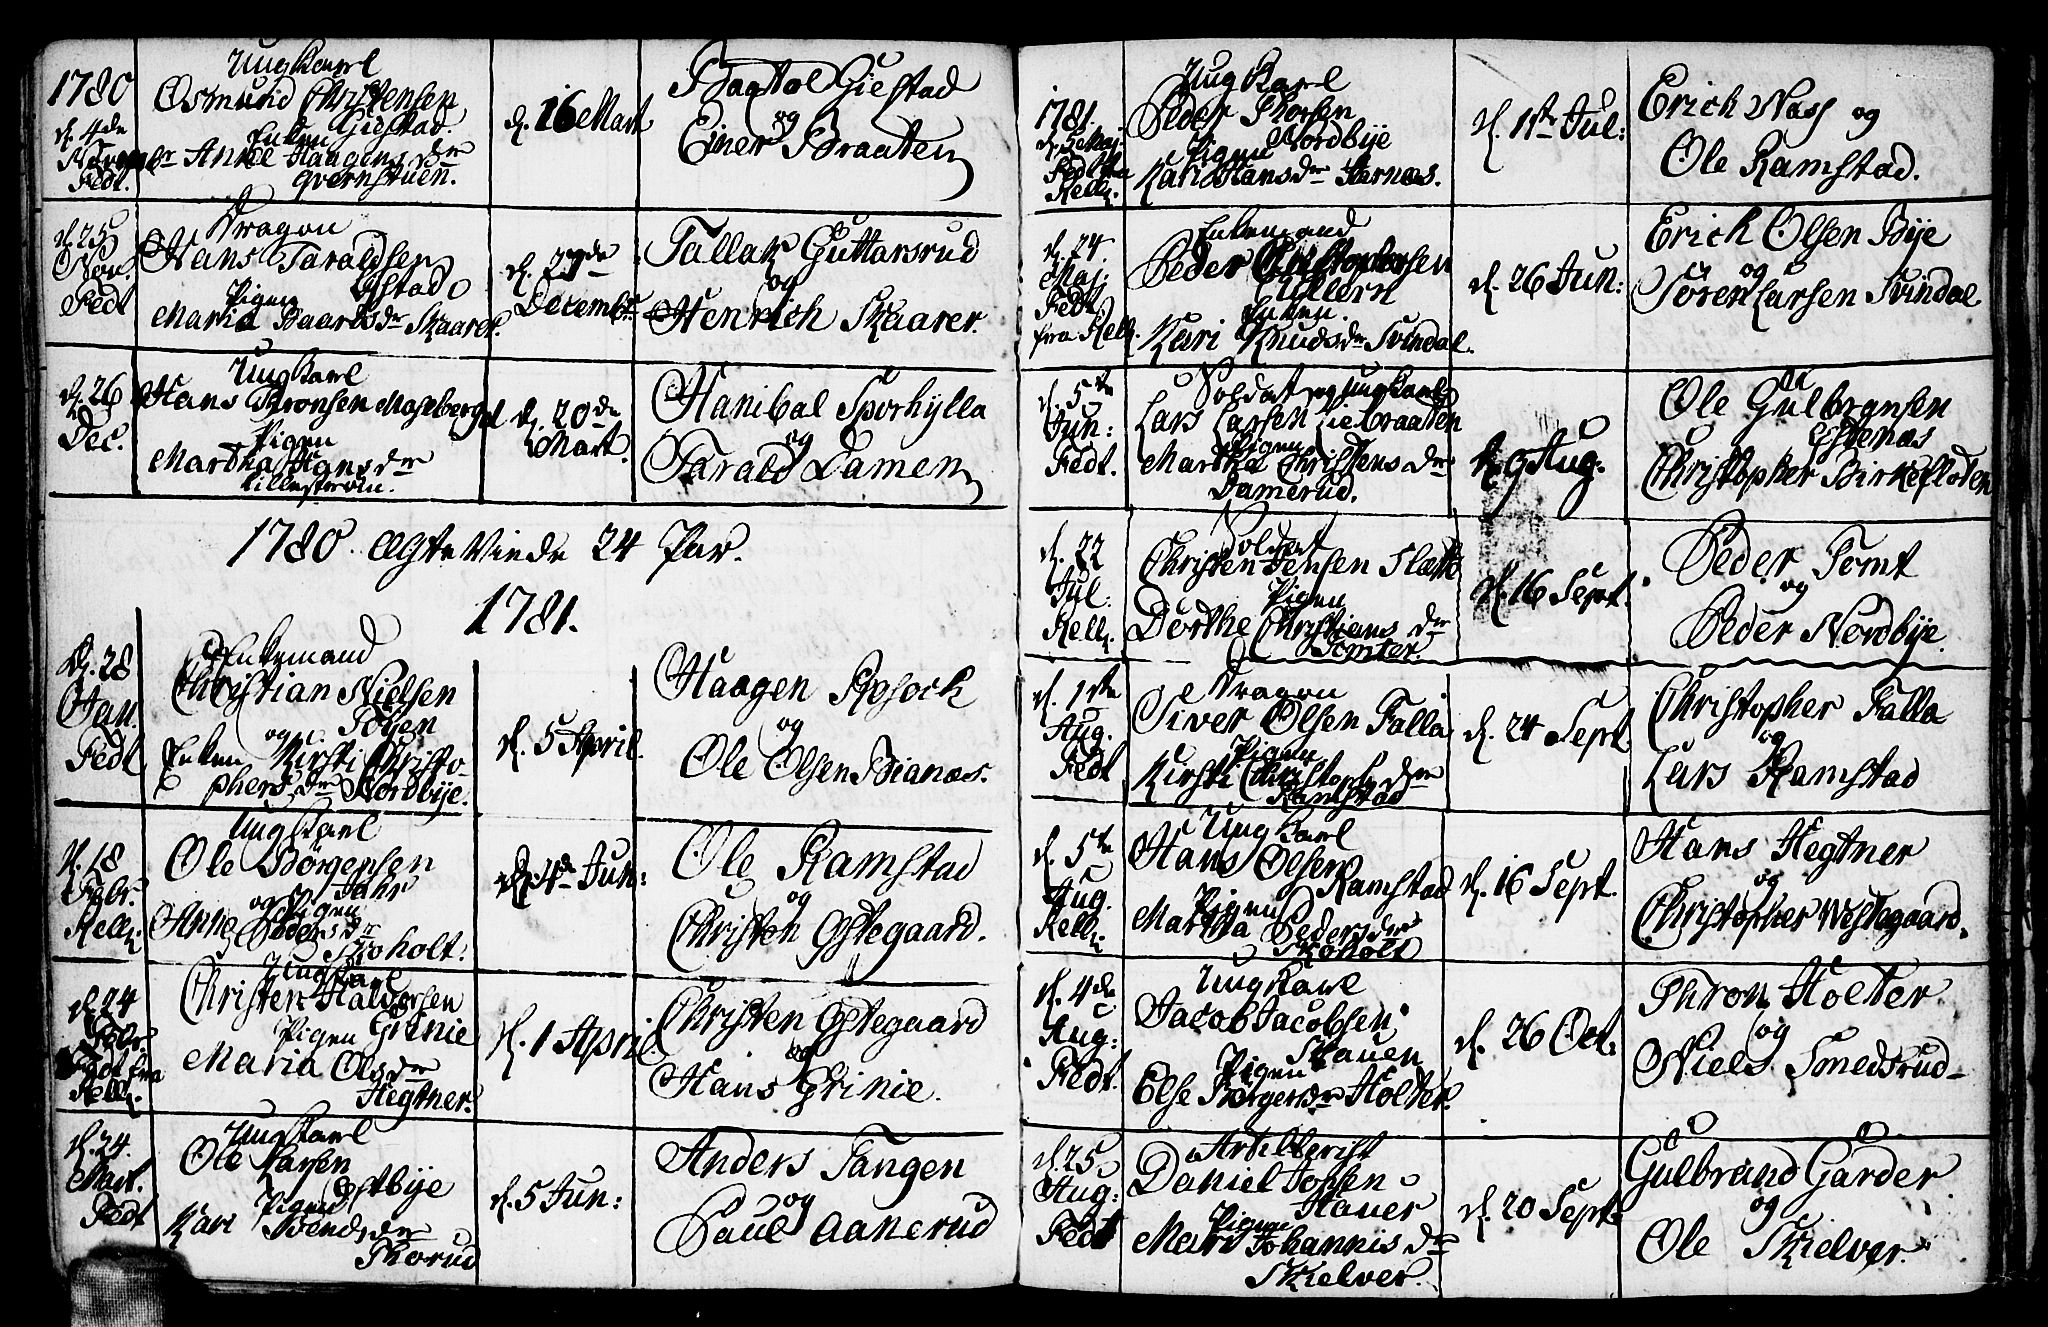 1780
d. 4de
Fedt.
Ungkarl
Osmund Christensen
Giestad.
Enken
Anne Haagensdr
qvernstuen.
d. 16 Mart
Baatol Giestad
og
Einer Braaten
d. 25
Nov.
Fedt
Dragon
Hans Taraldsen
Ystad
Pigen
Maria Baardsdr Skaarer.
d. 27de
Decembr
Tallak Guttarsrud
og
Henrich Skaarer.
d. 26
Dec.
Ungkarl
Hans Thronsen
Pigen
Martha Hansdr
Lillestrøm.
d. 20de
Mart.
Hanibal Sporhylla
og
Tarald Damen
1780. Ægte Viede 24 Par.
1781.
d. 28
Jan.
Fedt
Enkemand
Christian Nielsen
Tøyen
og
Enken Kirsti Christo-
phersdr Nordbye.
d. 5 April.
Haagen Rosock
og
Ole Olsen Bianæs.
d. 18
Febr.
Kell.
Ungkarl
Ole Børgesen
Fahr
og Pigen
Anne Pedersdr
Skoholt.
d. 4de Jun:
Ole Ramstad
og
Christen Østegaard.
d. 24
Febr
Fedt fra
Kell.
Ungkarl
Christen Haldorsen
Grinie
Pigen
Maria Olsdr
Hegtner.
d. 1 April.
Christen Østegaard
og
Hans Grinie.
d. 24.
Mart.
Fedt
Ungkarl
Ole Larsen
Østbye
Pigen
Kari Svendsdr
Thorud
d. 5 Jun:
Anders Tangen
og
Paul Aanerud
1781.
Fedt fra
Kell.
Ungkarl
Peder Thorsen
Nordbye
Pigen
Kari Hansdr Tærnæs.
d. 1ste Jul:
Erich Nass og
Ole Ramstad.
d. 24.
Maj.
Fedt
fra Kell.
Enkemand
Peder Christophersen
Ullern
Enken.
Kari Knudsdr Svindal.
d. 26 Jun:
Erich Olsen Bye
og
Søren Larsen Svindal
d. 5te
Jun:
Fedt.
Soldat og Ungkarl
Lars Larsen Liebraaten
Pigen
Martha Christensdr
Damerud.
d. 9 Aug.
Ole Gulbransen
Estenæs
Christopher Birkefloten
d. 22
Jul:
Kell.
Soldat
Christen Jensen Slætto
Pigen
Dorthe Christiansdr
Tomter.
d. 16 Sept.
Peder Tomt
og
Peder Nordbye.
d. 1ste
Aug.
Fedt
Dragon
Siver Olsen Falla
Pigen
Kirsti Christophdr
Ramstad
d. 24 Sept
Christopher Falla
og
Lars Ramstad
d. 5te
Aug.
Kell.
Ungkarl
Hans Olsen
Ramstad
Pigen
Martha Pedersdr
Skoholt
d. 16 Sept.
Hans Hegtner
og
Christopher Westegaard.
d. 4de
Aug:
Fedt.
Ungkarl
Jacob Jacobsen
Skauen
Pigen
Else Borgersdr Holter.
d. 26 Oct.
Thron Holter
og
Niels Smedsrud
d. 25
Aug:
Fedt
Artillerist
Daniel Jossen
Hauer
Pigen
Mari Johannisdr
Skielver.
d. 20 Sept.
Gulbrand Garder
og
Ole Skielver.